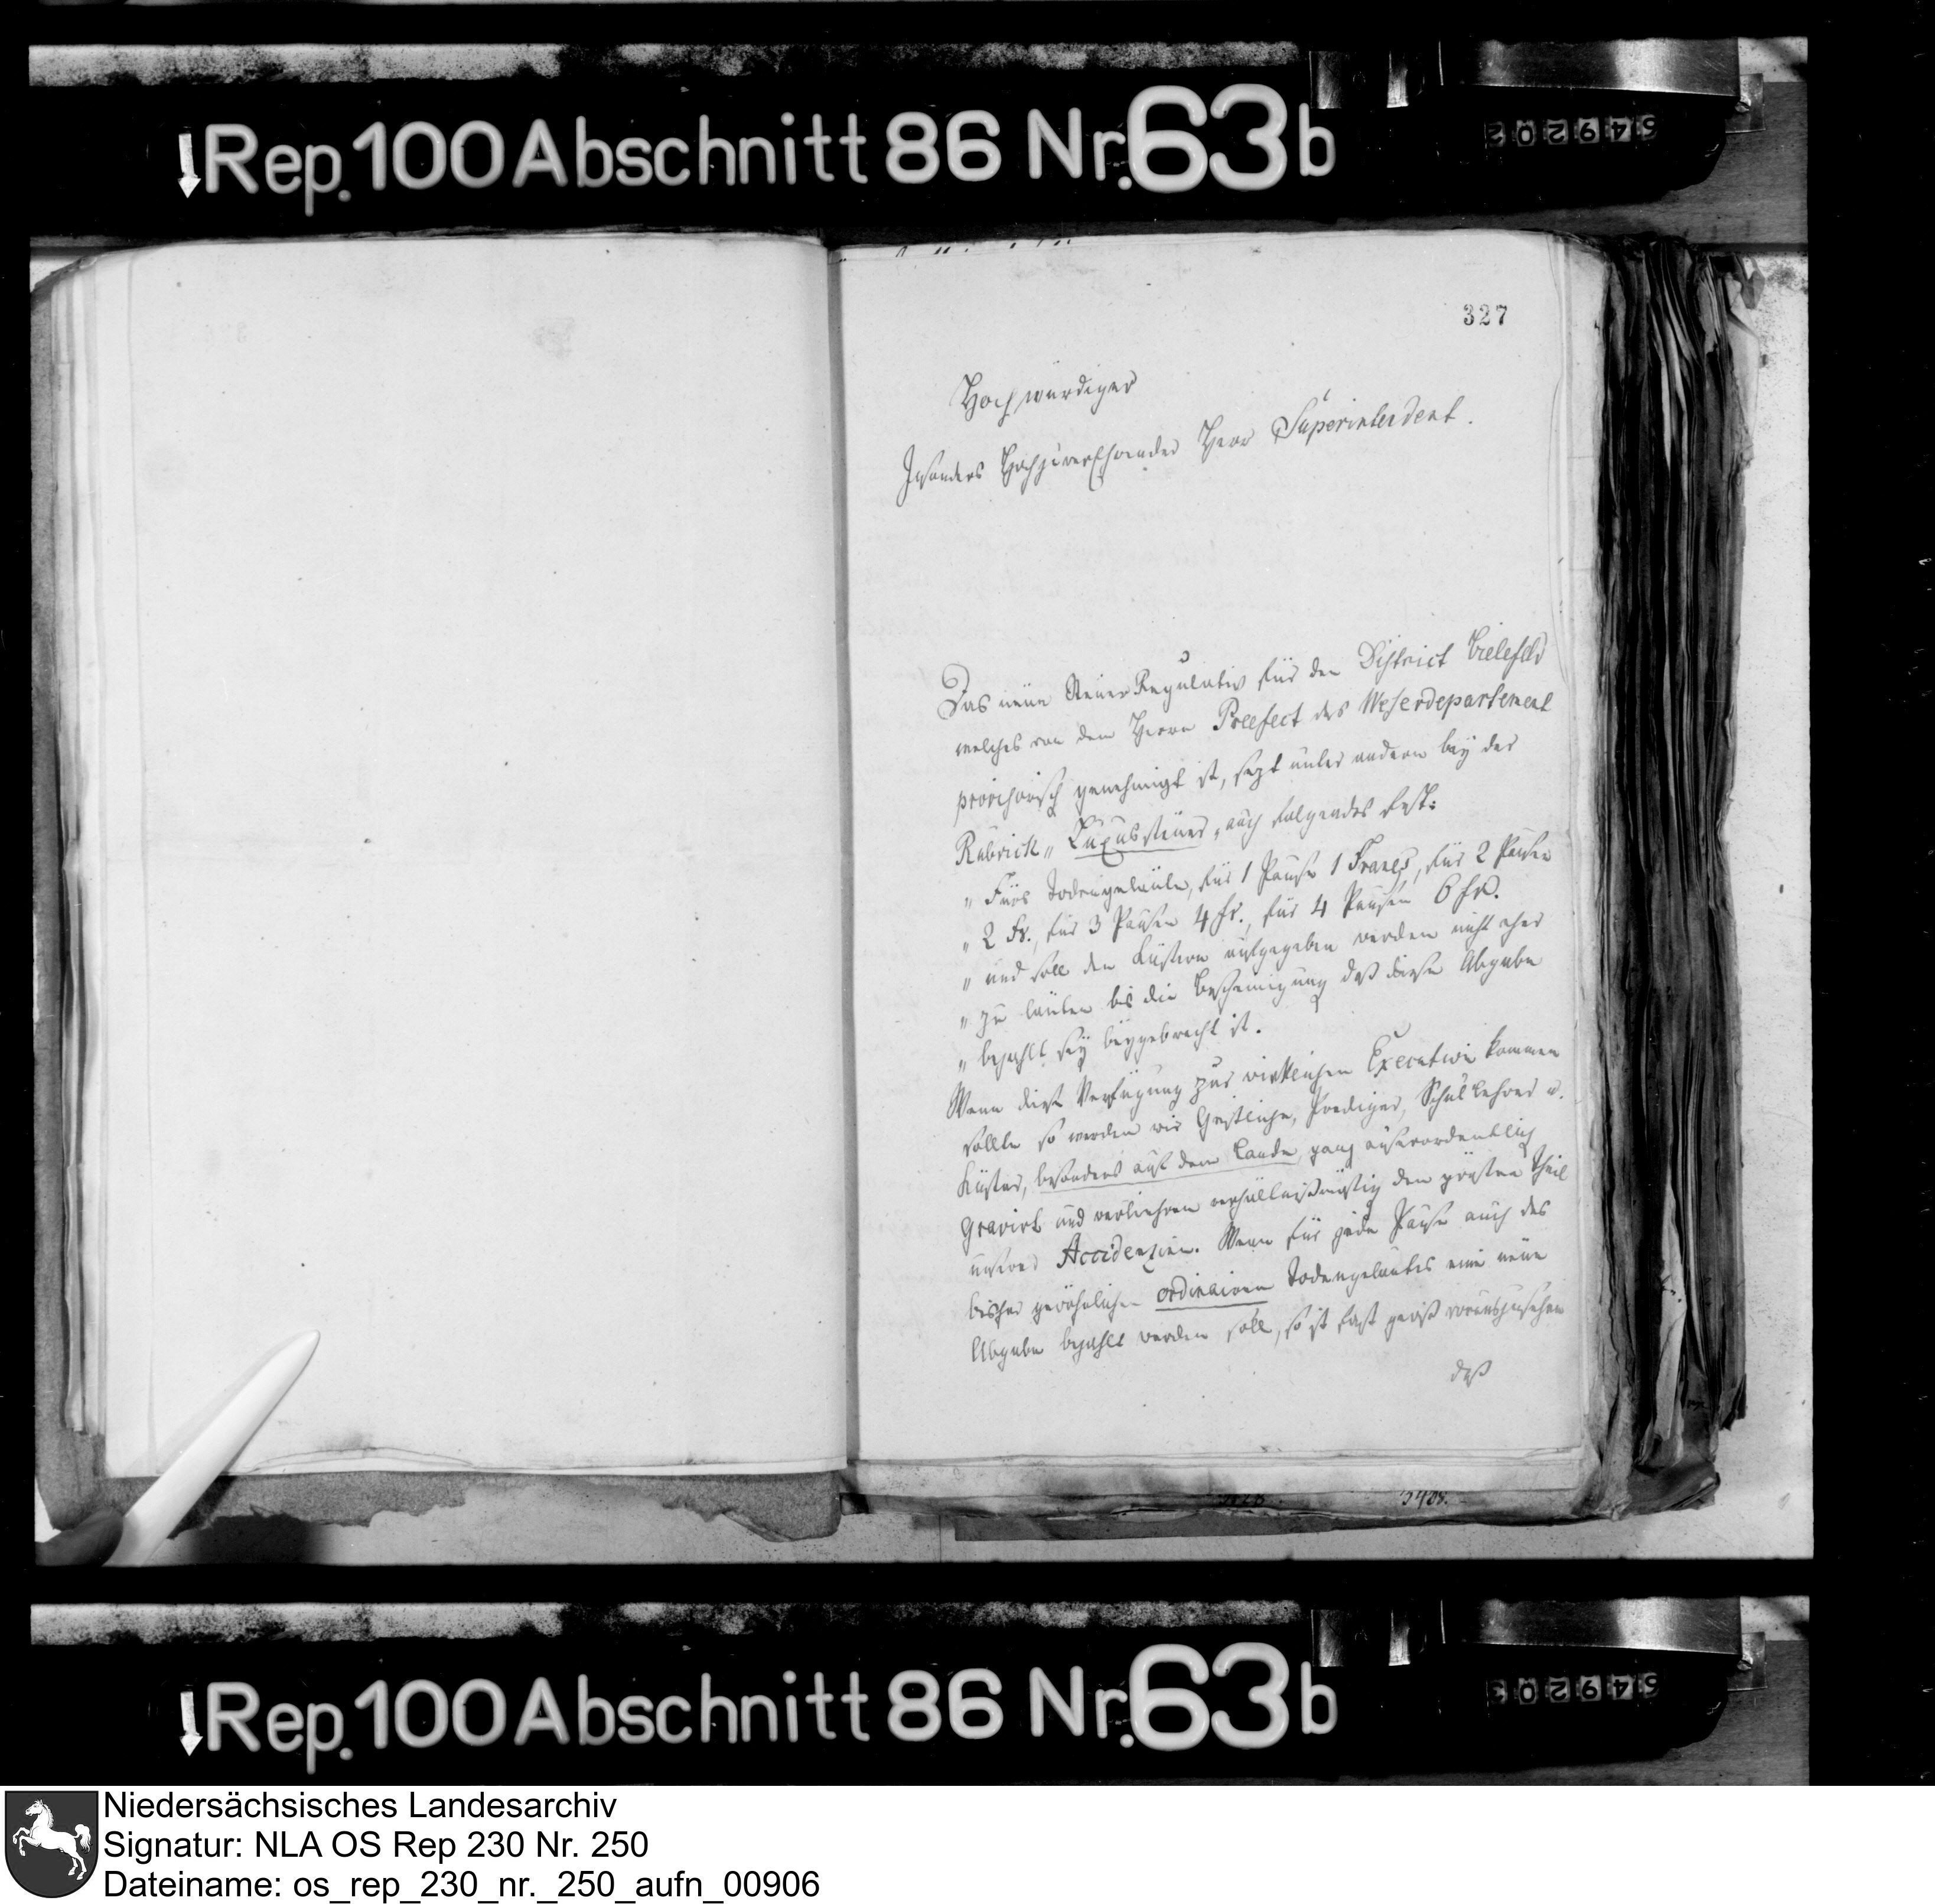 Rep. 100 Abschnitt 86 Nr. 63b
549202
327
Hochwürdiger
Insonders Hochzuverehrender Herr Superintendent.
Das neue Steuer Regulativ für den District Bielefeld
welches von dem Herrn Preefect des Weserdepartement
provisorisch genehmigt ist, sezt unter andern bey der
Rubrick „Luxussteuer„ auch folgendes fest:
„ Fürs Todengeläute, für 1 Pause 1 Francs, für 2 Pausen
„ 2 Fr., für 3 Pausen 4 fr., für 4 Pausen 6 fr.
„ und soll den Küstern aufgegeben werden nicht eher
„ zu läuten bis die Bescheinigung daß diese Abgabe
„ bezahlt sey beygebracht ist.
Wenn diese Verfügung zur wirklichen Execution kommen
sollte so werden wir Geistliche, Prediger, Schullehrer u.
Küster, besonders auf dem Lande, ganz außerordentlich
gravirt und verliehren verhältnißmäßig den grösten Theil
unsrer Accidenzien. Wenn für jede Pause auch des
bisher gewöhnlichen ordinairen Todengeläutes eine neue
Abgabe bezahlt werden soll, so ist fast gewiß vorauszusehen
daß
5408.
Rep. 100 Abschnitt 86 Nr. 63b
549203
Niedersächsisches Landesarchiv
Signatur: NLA OS Rep 230 Nr. 250
Dateiname: os_rep_230_nr._250_aufn_00906